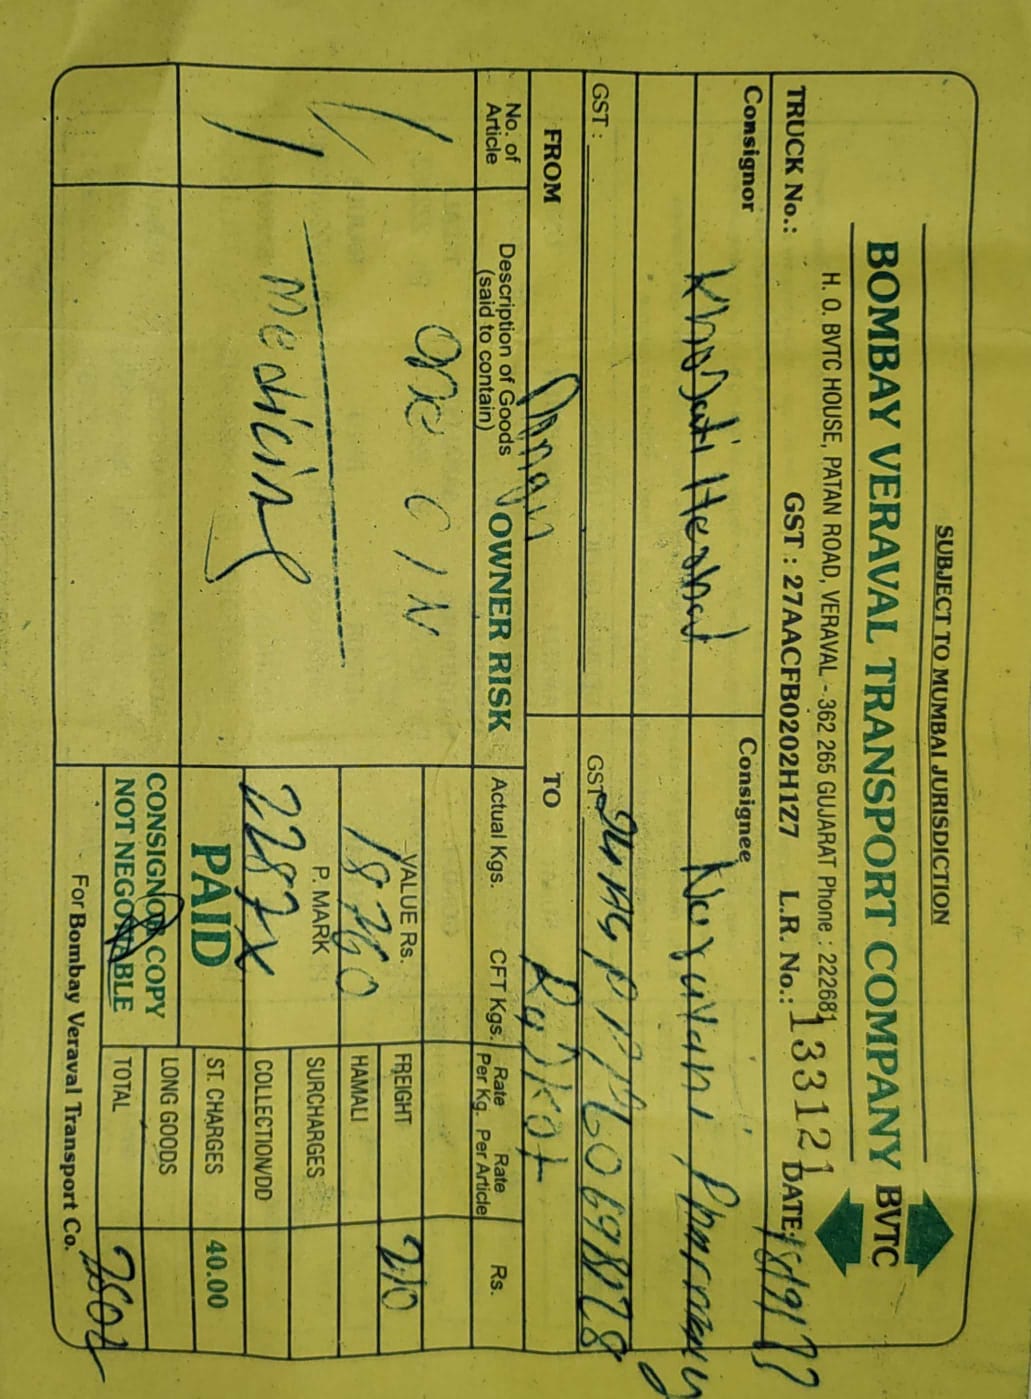 SUBJECT TO MUMBAI JURISDICTION
BOMBAY VERAVAL TRANSPORT COMPANY BVTC
H. O. BVTC HOUSE, PATAN ROAD, VERAVAL - 362 265 GUJARAT Phone : 222681
TRUCK No.: GST : 27AACFB0202H1Z7 L.R. No.: 133121 DATE:
Consignor
Consignee
GST :
GST:
FROM Daman
TO Rajkot
No. of Article
Description of Goods (said to contain)
OWNER RISK
Actual Kgs.
CFT Kgs.
Rate Per Kg.
Rate Per Article
Rs.
one C/N
Medicine
VALUE Rs.
18760
P. MARK
2287X
PAID
CONSIGNOR COPY
NOT NEGOTIABLE
FREIGHT 210
HAMALI
SURCHARGES
COLLECTION/DD
ST. CHARGES 40.00
LONG GOODS
TOTAL
For Bombay Veraval Transport Co.